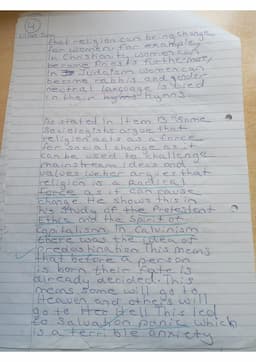 4
that religion can bring change
for women for example,
in Christianity women can
become Priests furthermore,
in Judaism women can
become rabbis and gender
neutral language is used
in their hymns hymns.
As stated in Item B "Some
Sociologists argue that
religion acts as a force
for social change as it
can be used to challenge
mainstream ideas and
values. Weber argues that
religion is a Radical
force as it can cause
change. He shows this in
his study of the Protestant
Ethic and the Spirit of
Capitalism. In Calvinism
there was the idea of
Predestination This means
that before a person
is born their fate is
already decided. This
means some will go to
Heaven and others will
go to Hell This led
to Salvation panic which
is a terrible anxiety